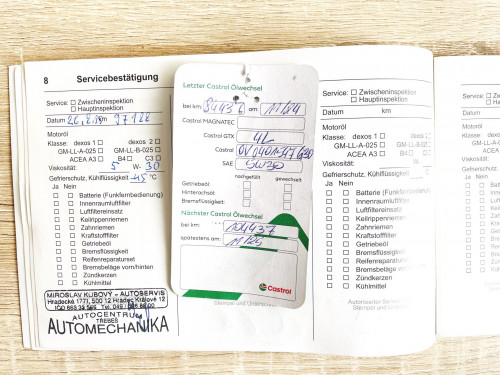 8 Servicebestätigung
Service: Zwischeninspektion
Hauptinspektion
Datum km
Motoröl
Klasse: dexos 1 dexos 2
GM-LL-A-025 GM-LL-B-025
ACEA A3 B4 C3
Viskosität: 5 W- 30
Gefrierschutz, Kühlflüssigkeit -45 °C
Ja Nein
Batterie (Funkfernbedienung)
Innenraumluftfilter
Luftfiltereinsatz
Keilrippenriemen
Zahnriemen
Kraftstofffilter
Getriebeöl
Bremsflüssigkeit
Reifenreparaturset
Bremsbeläge vorn/hinten
Zündkerzen
Kühlmittel
MIROSLAV KUBOVÝ - AUTOSERVIS
Hradecká 1771, 500 12 Hradec Králové 12
AUTOCENTRUM
TŘEBEŠ
AUTOMECHANIKA
Letzter Castrol Ölwechsel
bei km: 94437 am 11/24
Castrol MAGNATEC
Castrol GTX 4L
Castrol
SAE 5W30
nachgefüllt gewechselt
Getriebeöl:
Hinterachsöl:
Bremsflüssigkeit:
Nächster Castrol Ölwechsel
bei km: 104437
spätestens am: 11/25
Castrol
Stempel und Unterschrift
Service: Zwischeninspektion
Hauptinspektion
Datum km
Motoröl
Klasse: dexos 1 dexos 2
GM-LL-A-025 GM-LL-B-025
ACEA A3 B4 C3
Viskosität: W-
Gefrierschutz, Kühlflüssigkeit °C
Ja Nein
Batterie (Funkfernbedienung)
Innenraumluftfilter
Luftfiltereinsatz
Keilrippenriemen
Zahnriemen
Kraftstofffilter
Getriebeöl
Bremsflüssigkeit
Reifenreparaturset
Bremsbeläge vorn/hinten
Zündkerzen
Kühlmittel
Autorisierter Service
Stempel und Unterschrift
Service:
Datum
Motoröl
Klasse: